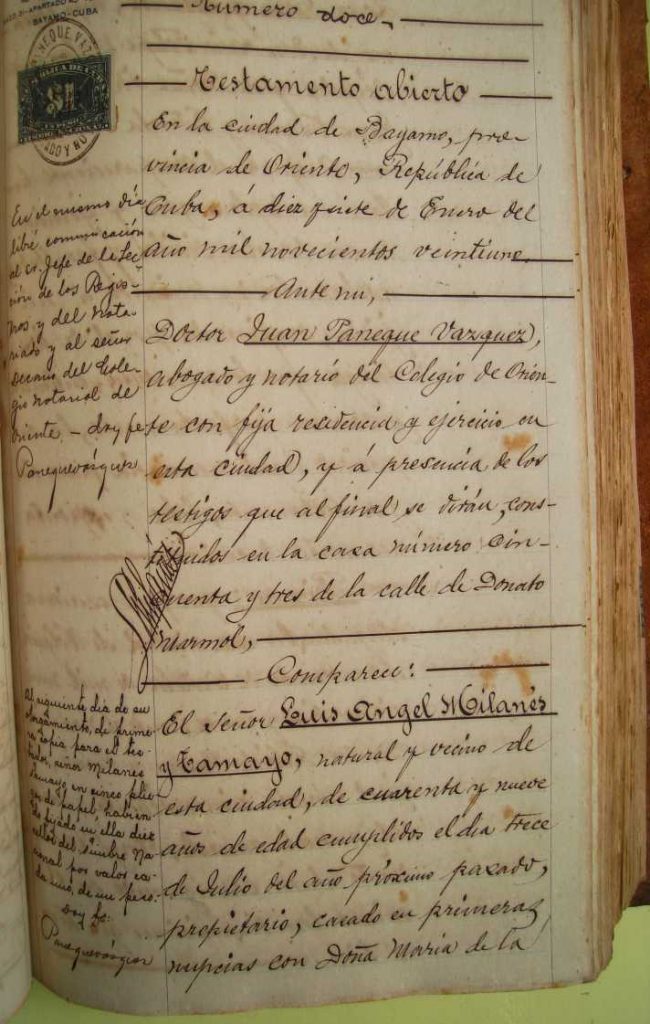 DO 21-APARTADO N
BAYAMO-CUBA
Número doce,
Testamento abierto
En la ciudad de Bayamo, pro-
vincia de Oriente, República de
Cuba, á diez y siete de Enero del
año mil novecientos veintiuno.
Ante mi,
Doctor Juan Paneque Vazquez,
abogado y notario del Colegio de Orien-
te con fija residencia y ejercicio en
esta ciudad, y á presencia de los
testigos que al final se dirán, cons-
tituidos en la casa número cin-
cuenta y tres de la calle de Donato
Marmol,
Comparece:
El señor Luis Angel Milanés
y Tamayo, natural y vecino de
esta ciudad, de cuarenta y nueve
años de edad cumplidos el dia trece
de Julio del año próximo pasado,
propietario, casado en primeras
nupcias con Doña Maria de la
En el mismo dia
libré comunicación
al sr. Jefe de la Sec
ción de los Regis-
tros y del Nota-
riado y al señor
Decano del Cole-
gio Notarial de
Oriente. - doy fe
Panequevázquez
Al siguiente dia de su
otorgamiento, di prime-
ra copia para el tes-
tador, señor Milanes
Tamayo, en cinco plie-
gos de papel, habien-
do fijado en ella diez
sellos del timbre Na-
cional por valor ca-
da uno, de un peso.
Doy fe:
Panequevázquez